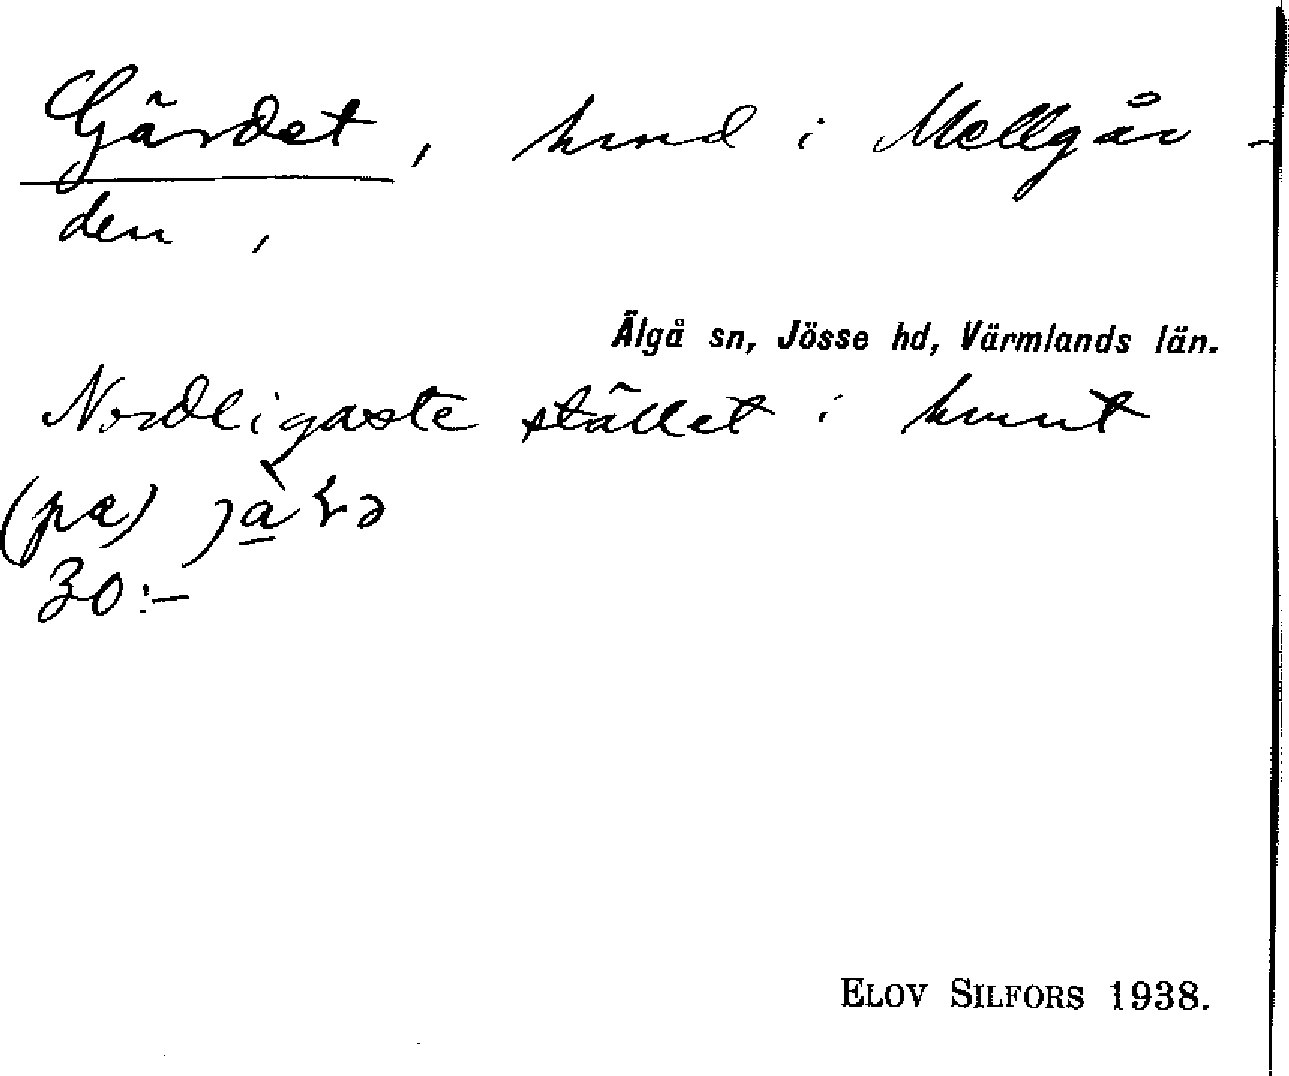 Gärdet, hmd i Mellgår-
den,
Älgå sn, Jösse hd, Värmlands län.
Nordligaste stället i hmnt
(pα)
30:-
ELOV SILFORS 1938.